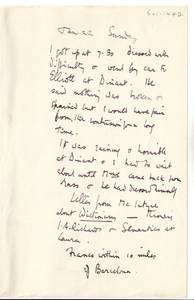 Jan 22 Sunday
I got up at 7.30 dressed with
Difficulty & went by car to
Elliott at Dinant. He
said nothing was broken or
sprained but I would have pain
from the contusion for a long
time.
It was raining & horrible
at Dinant & I had to wait
about until came back from
Mass & he had
Letter from McIntyre
about Dictionary —
I.A. Richards & Semantics at
Franco within 10 miles
of Barcelona